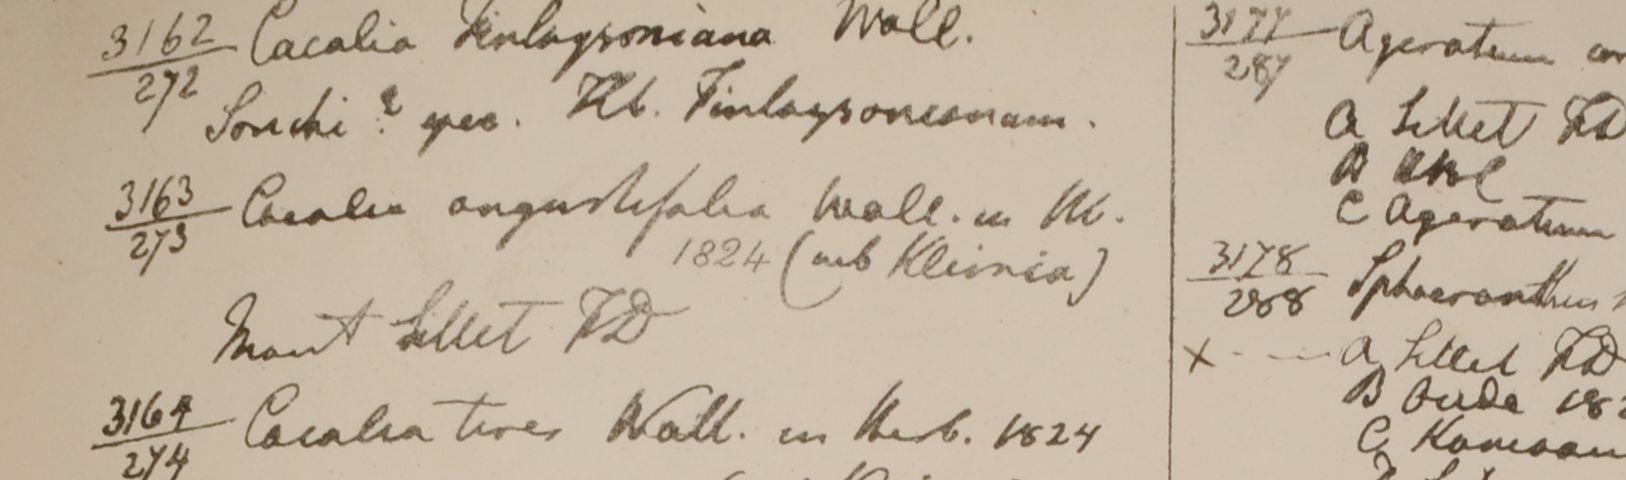 3162 Cacalia Finlaysoniana Wall.
272
Sonchi? spec. Hb. Finlaysonianum.
3163 Cacalia angustifolia Wall. in Hb.
273
1824 (sub Kleinia)
Mont Sillet FD
3164 Cacalia Wall. in Herb. 1824
274
3177 Ageratum
287
A Sillet FD
B
C Ageratum
3178 Sphaeranthus
288
x - - - A Sillet FD
B Oude 182
C Kamaon